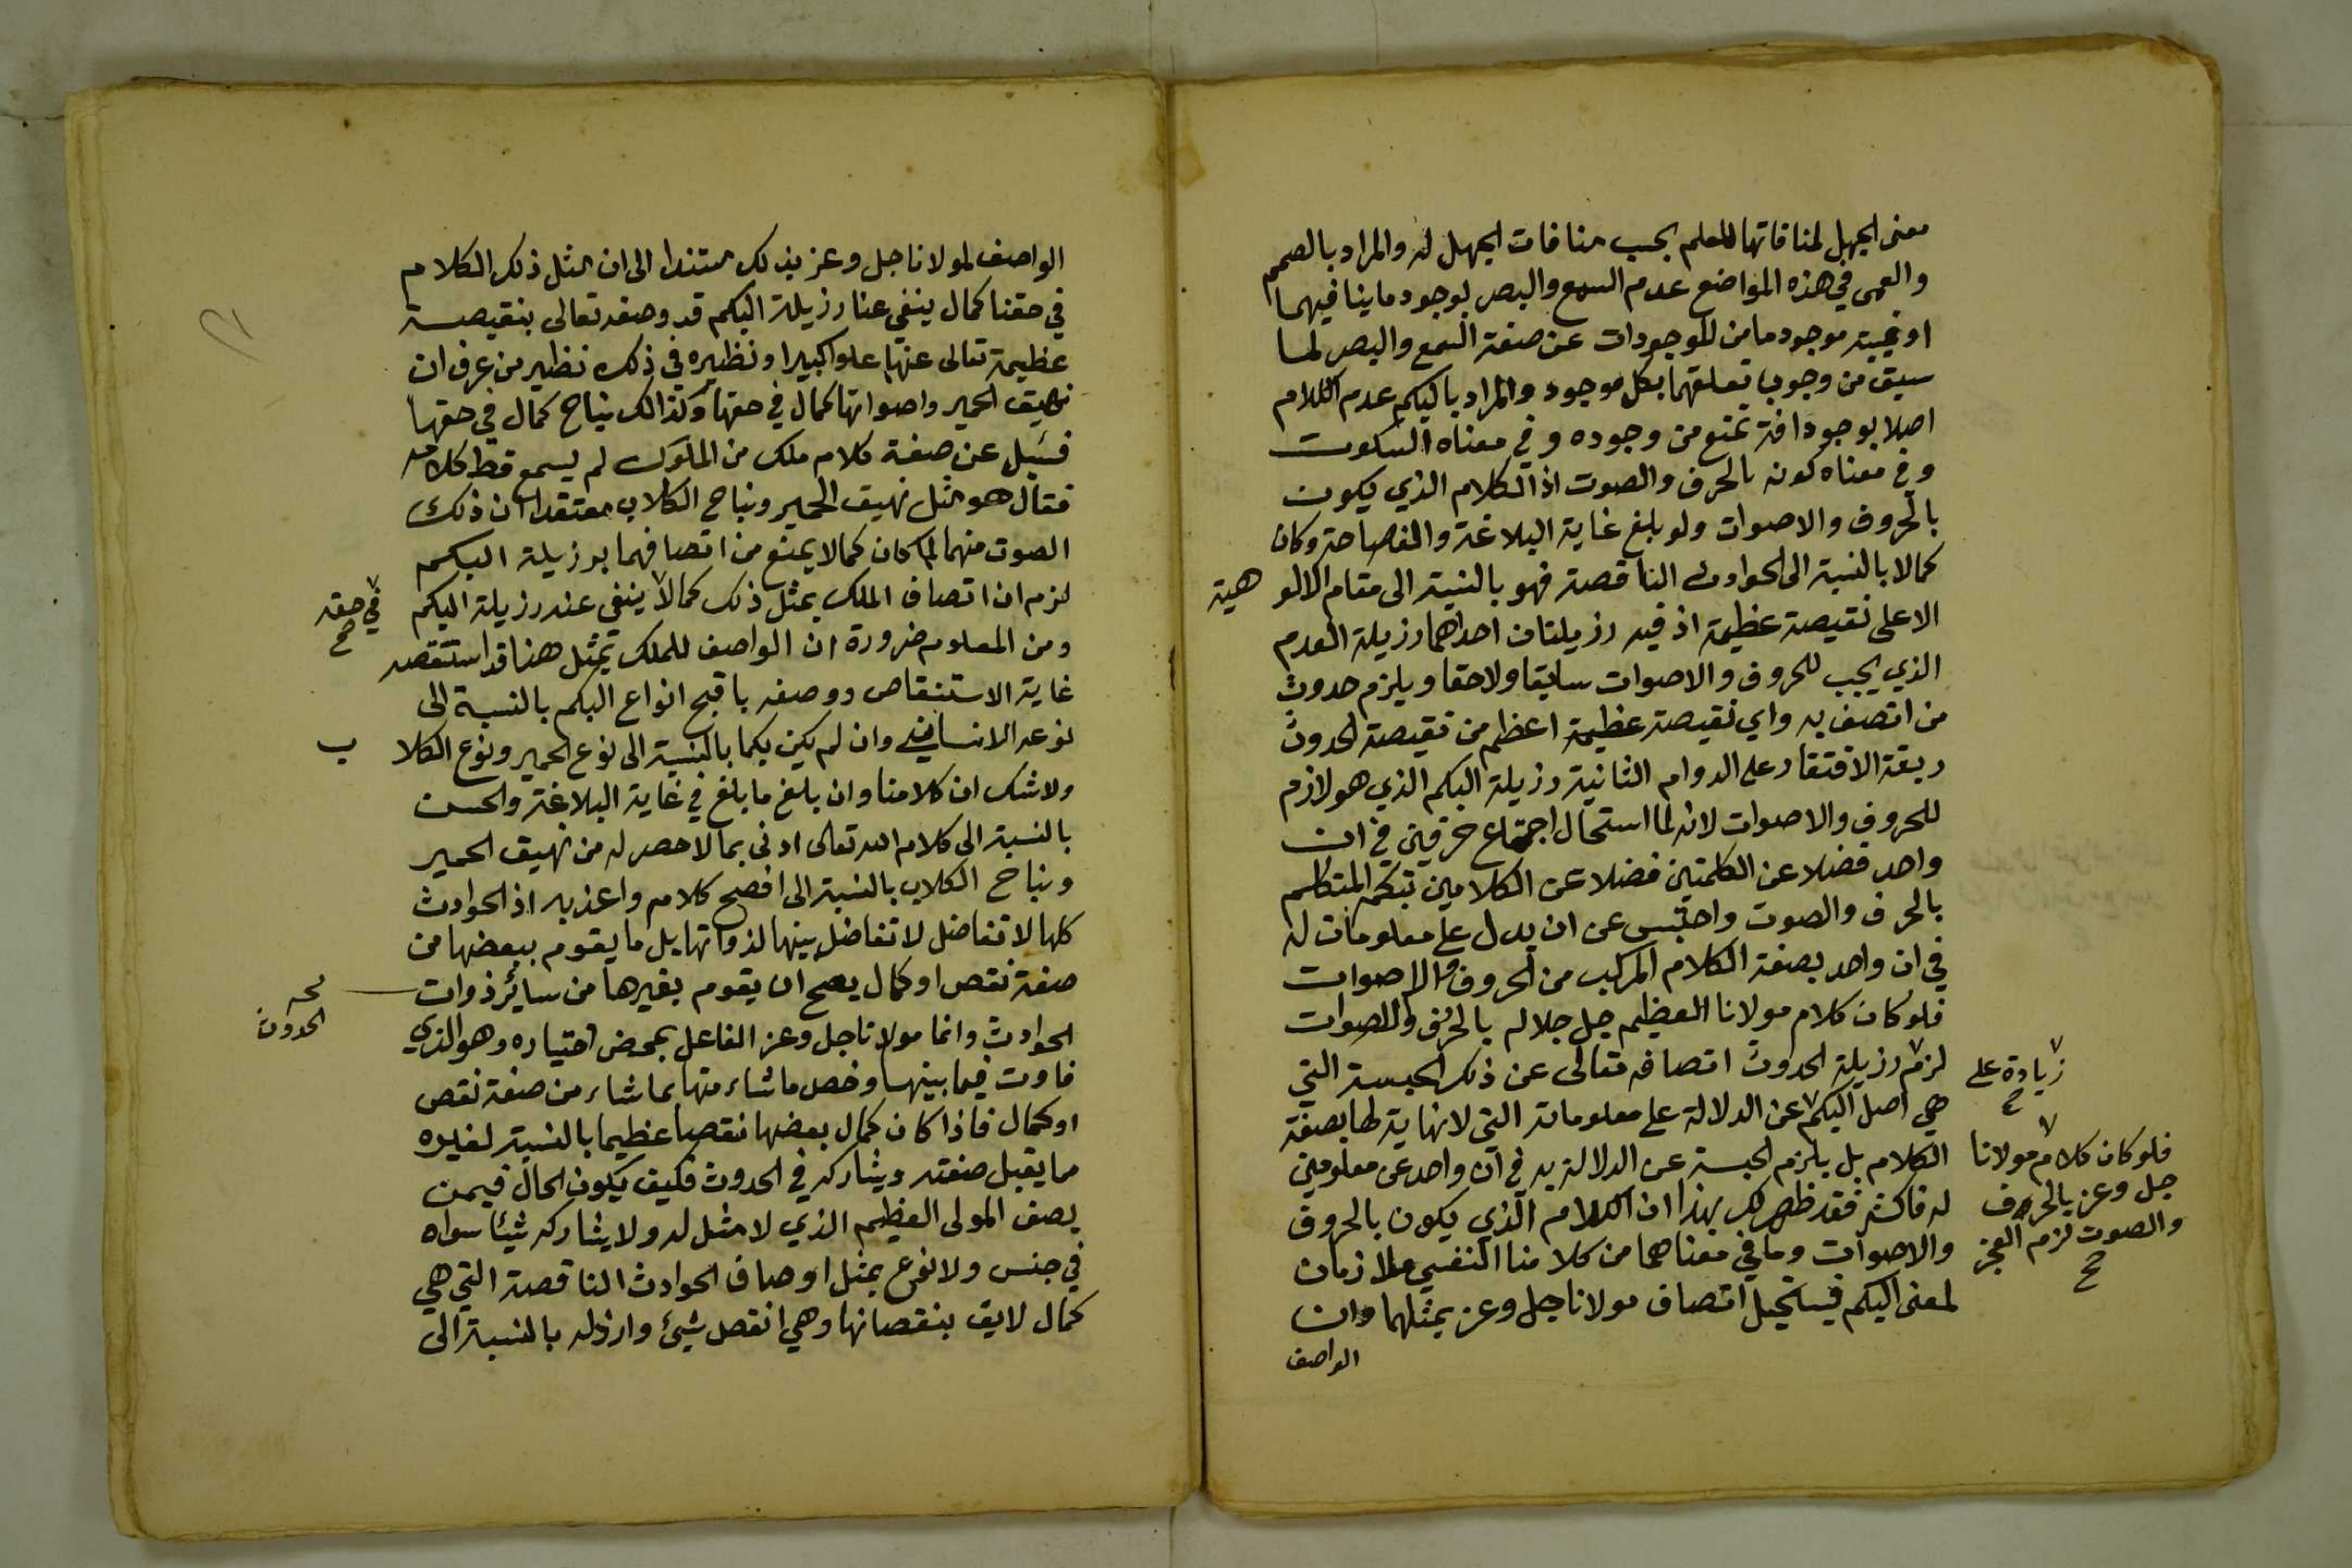 معنى الجهل لمنافاتها للعلم بحسب منافات الجهل له والمراد بالصمم
والعمى في هذه المواضع عدم السمع والبصر بوجود ما ينافيهما
او غيبة موجود ما من الموجودات عن صفة السمع والبصر لما
سبق من وجوب تعلقهما بكل موجود والمراد بالبكم عدم الكلام
اصلا بوجود افة تمنع من وجوده وفي معناه السكوت
وفي معناه كونه بالحرف والصوت اذ الكلام الذي يكون
بالحروف والاصوات ولو بلغ غاية البلاغة والفصاحة وكان
كمالا بالنسبة الى الحوادث الناقصة فهو بالنسبة الى مقام الالوهية
الاعلى نقيصة عظيمة اذ فيه رزيلتان احداهما رزيلة العدم
الذي يجب للحروف والاصوات سابقا ولاحقا ويلزم حدوث
من اتصف به واي نقيصة عظيمة اعظم من نقيصة الحدوث
ربقة الافتقار على الدوام الثانية رزيلة البكم الذي هو لازم
للحروف والاصوات لانه لما استحال اجتماع حرفين في ان
واحد فضلا عن الكلمتين فضلا عن الكلامين تبكم المتكلم
بالحرف والصوت واحتبس عن ان يدل على معلومات له
في ان واحد بصفة الكلام المركب من الحروف والاصوات
فلو كان كلام مولانا العظيم جل جلاله بالحرف والاصوات
لزم رزيلة الحدوث اتصافه تعالى عن ذلك الحبسة التي
هي اصل البكم عن الدلالة على معلوماته التي لا نهاية لها بصفة
الكلام بل يلزم الحبسة عن الدلالة به في آن واحد عن معلومين
له فاكثر فقد ظهر لك بهذا ان الكلام الذي يكون بالحروف
والاصوات وما في معناهما من كلامنا النفسي ملازمان
لمعنى البكم فيستحيل اتصاف مولانا جل وعز بمثلهما وان
الواصف
زيادة على
صح
فلو كان كلام مولانا
جل وعز بالحرف
والصوت لزم العجز
صح
الواصف لمولانا جل وعز بذلك مستندا الى ان مثل ذلك الكلام
في حقنا كمال ينفي عنا رزيلة البكم قد وصفه تعالى بنقيصة
عظيمة تعالى عنها علوا كبيرا ونظيره في ذلك نظير من عرف ان
نهيق الحمير واصواتها كمال في حقها وكذالك نباح كمال في حقها
فسئل عن صفة كلام ملك من الملوك لم يسمع قط كلامه
فقال هو مثل نهيق الحمير ونباح الكلاب معتقدا ان ذلك
الصوت منهما لما كان كمالا يمنع من اتصافهما برزيلة البكم
لزم ان اتصاف الملك بمثل ذلك كمالا ينفي عنه رزيلة البكم
في حقه
صح
ومن المعلوم ضرورة ان الواصف للملك بمثل هنا قد استنقصه
غاية الاستنقاص ووصفه باقبح انواع البكم بالنسبة الى
نوعه الانساني وان لم يكن بكما بالنسبة الى نوع الحمير ونوع الكلاب
ولا شك ان كلامنا وان بلغ ما بلغ في غاية البلاغة والحسن
بالنسبة الى كلام الله تعالى ادنى بما لا حصر له من نهيق الحمير
ونباح الكلاب بالنسبة الى افصح كلام واعذبه اذ الحوادث
كلها لا تفاضل لا تفاضل بينها لذواتها بل ما يقوم ببعضها من
صفة نقص او كمال يصح ان يقوم بغيرها من سائر ذوات
الحدوث
الحوادث وانما مولانا جل وعز الفاعل بمحض اختياره وهو الذي
فاوت فيما بينها وخص ما شاء منها بما شاء من صفة نقص
او كمال فاذا كان كمال بعضها نقصا عظيما بالنسبة لغيره
مما يقبل صفته ويشاركه في الحدوث فكيف يكون الحال فيمن
يصف المولى العظيم الذي لا مثل له ولا يشاركه شيئا سواه
في جنس ولا نوع بمثل اوصاف الحوادث الناقصة التي هي
كمال لايق بنقصانها وهي انقص شيئ وارذله بالنسبة الى